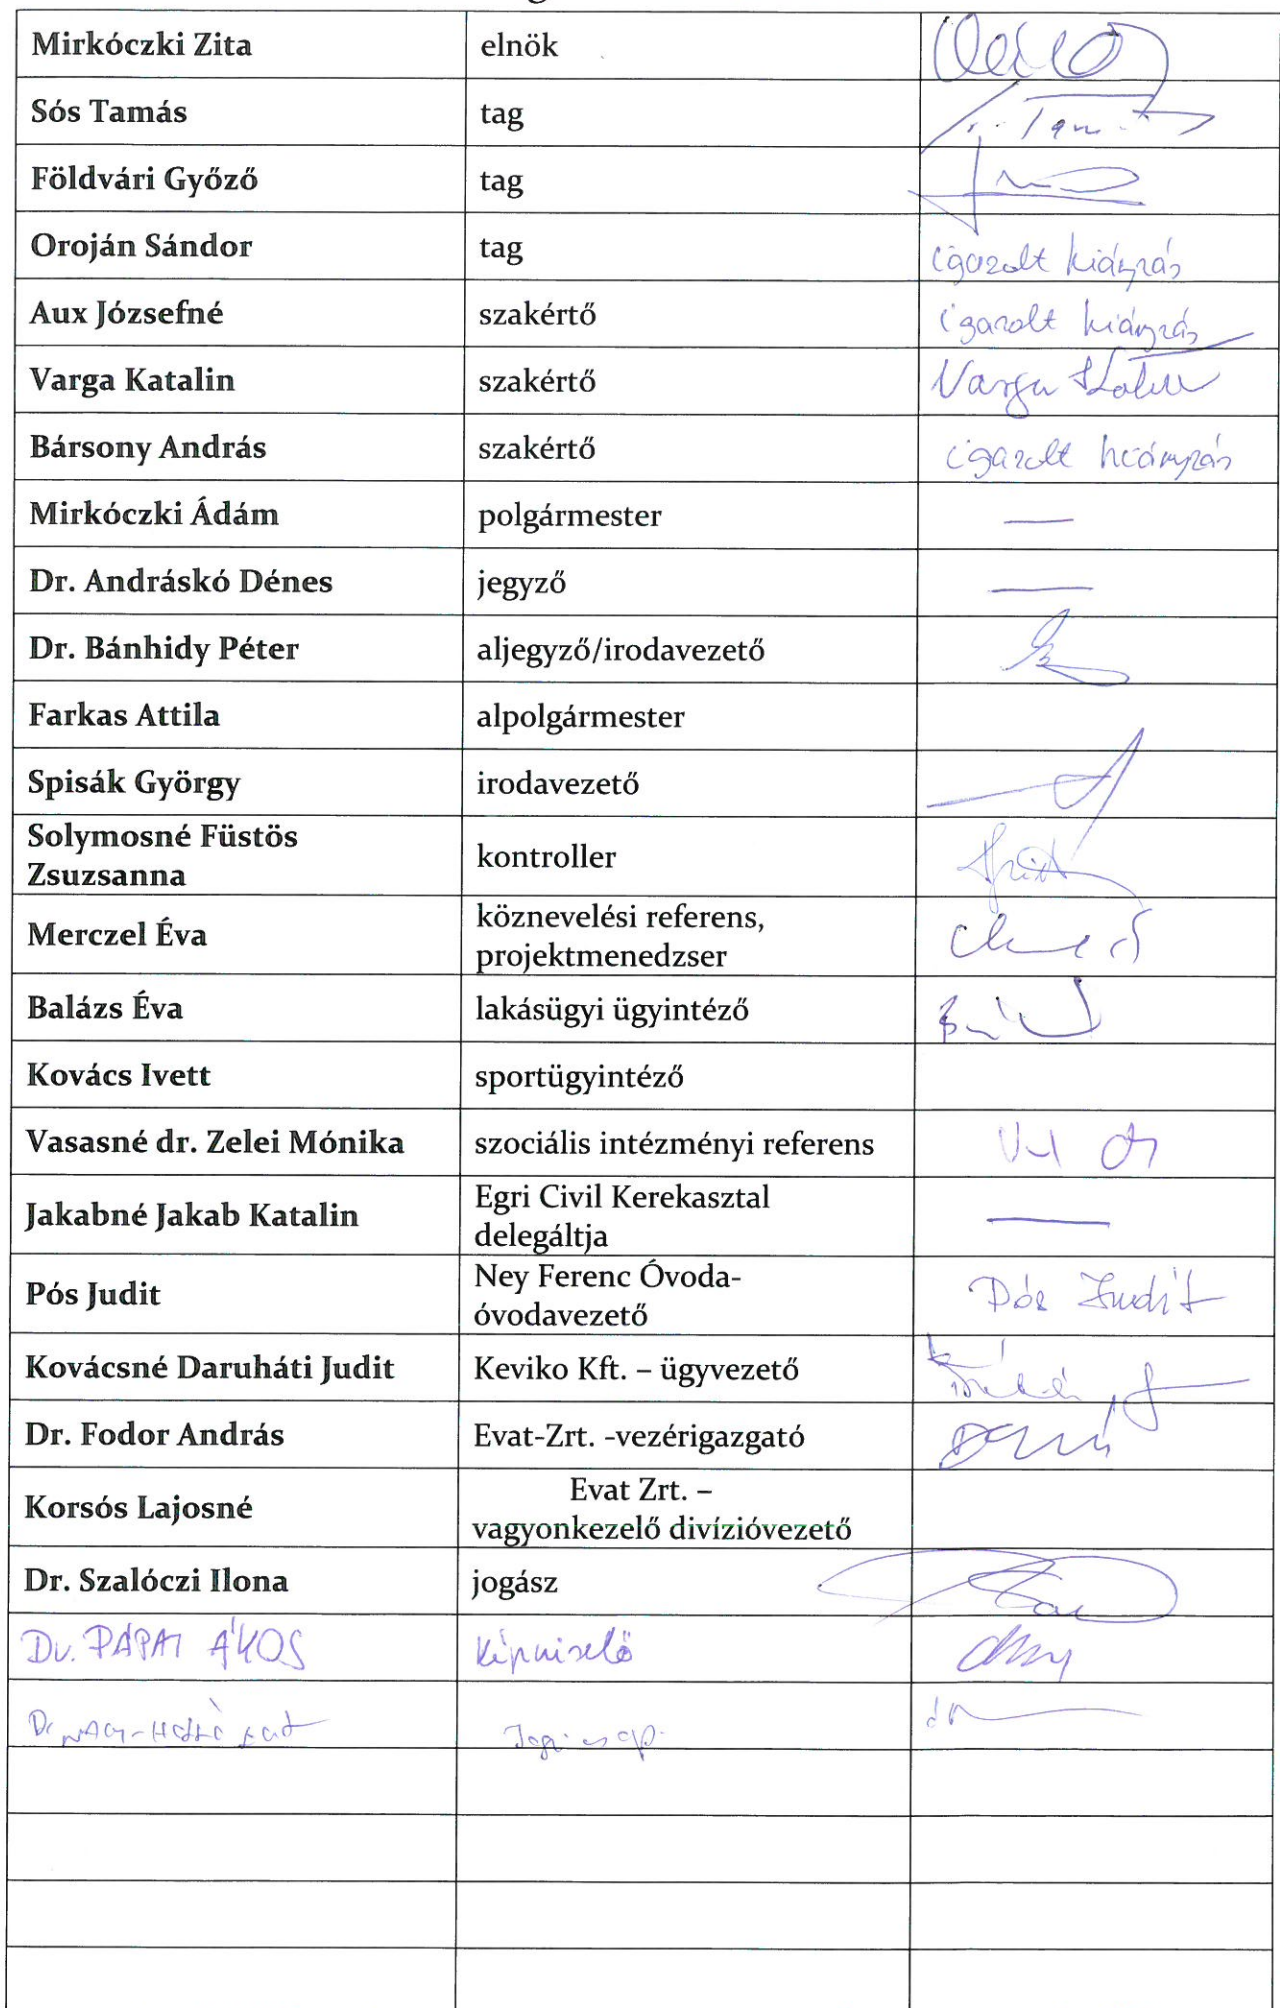 Mirkóczki Zita elnök
Sós Tamás tag
Földvári Győző tag
Oroján Sándor tag igazolt hiányzás
Aux Józsefné szakértő igazolt hiányzás
Varga Katalin szakértő Varga Katalin
Bársony András szakértő igazolt hiányzás
Mirkóczki Ádám polgármester —
Dr. Andráskó Dénes jegyző —
Dr. Bánhidy Péter aljegyző/irodavezető
Farkas Attila alpolgármester
Spisák György irodavezető
Solymosné Füstös
Zsuzsanna
kontroller
Merczel Éva
köznevelési referens,
projektmenedzser
Balázs Éva lakásügyi ügyintéző
Kovács Ivett sportügyintéző
Vasasné dr. Zelei Mónika szociális intézményi referens
Jakabné Jakab Katalin
Egri Civil Kerekasztal
delegáltja
—
Pós Judit
Ney Ferenc Óvoda-
óvodavezető
Pós Judit
Kovácsné Daruháti Judit Keviko Kft. – ügyvezető
Dr. Fodor András Evat-Zrt. -vezérigazgató
Korsós Lajosné
Evat Zrt. –
vagyonkezelő divízióvezető
Dr. Szalóczi Ilona jogász
Dr. PÁPAI ÁKOS képviselő